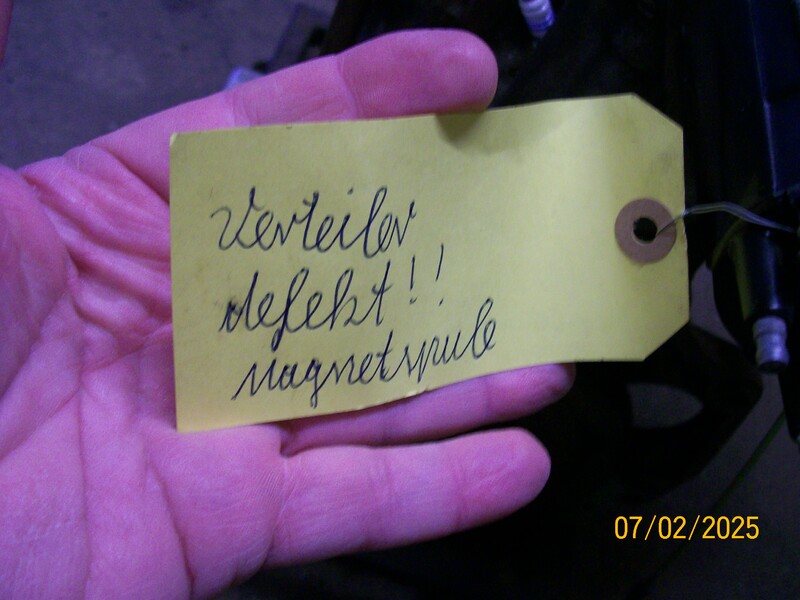 Verteiler
defekt!!
Magnetspule
07/02/2025